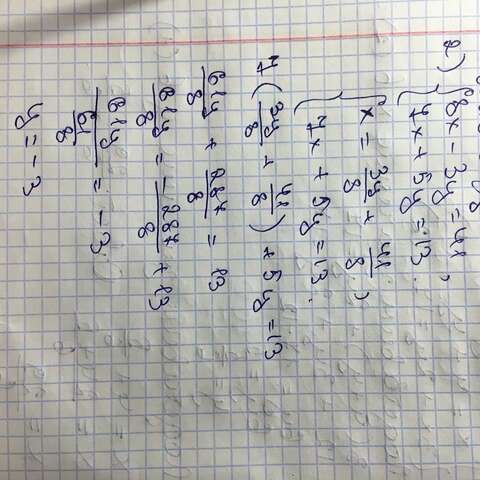 2) { 8x - 3y = 41,
7x + 5y = 13.
{ x = 3y/8 + 41/8;
7x + 5y = 13.
7 (3y/8 + 41/8) + 5y = 13
61y/8 + 287/8 = 13
61y/8 = - 287/8 + 13
61y/(61/8) = -3
y = -3